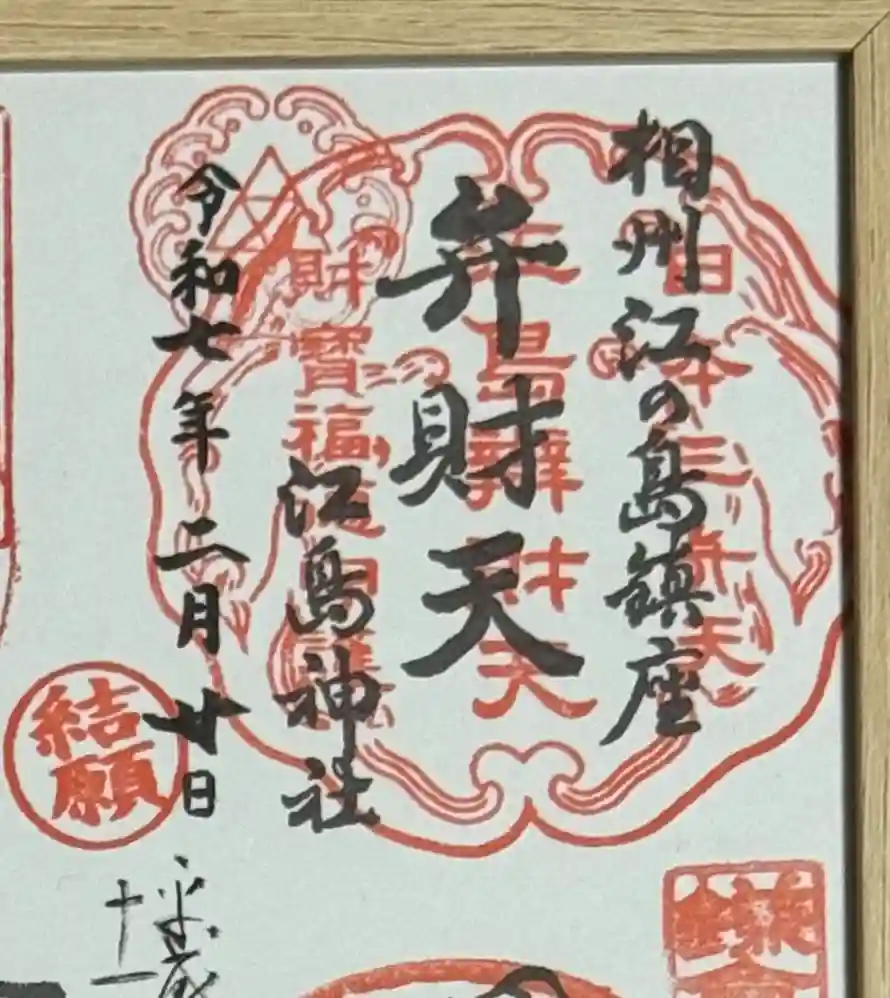 相州江の島鎮座
弁財天
江島神社
令和七年二月廿日
日本三弁天
江島辨財天
財寶福徳守護
結願
十一